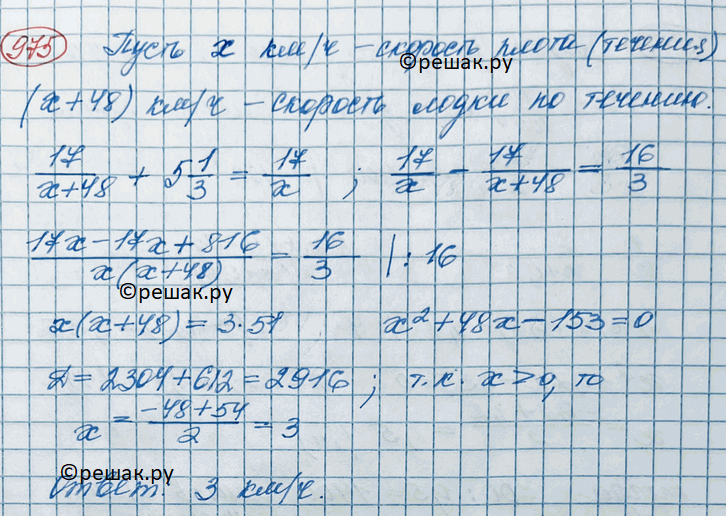 975 Пусть x км/ч – скорость плота (течения)
©решак.ру
(x+48) км/ч – скорость лодки по течению.
17/(x+48) + 5 1/3 = 17/x ; 17/x – 17/(x+48) = 16/3
(17x – 17x + 816)/(x(x+48)) = 16/3 | : 16
©решак.ру
x(x+48) = 3·51 x² + 48x – 153 = 0
Д = 2304 + 612 = 2916 ; т.к. x > 0, то
x = (–48 + 54)/2 = 3
©решак.ру
Ответ. 3 км/ч.